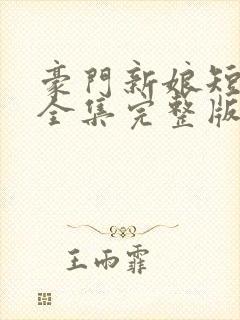 豪門新娘短
全集完整版
王雨霏